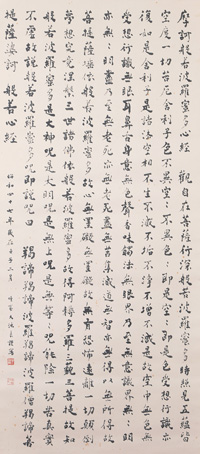 摩訶般若波羅蜜多心經 觀自在菩薩行深般若波羅蜜多時照見五蘊皆
空度一切苦厄舍利子色不異空空不異色色即是空空即是色受想行識亦
復如是舍利子是諸法空相不生不滅不垢不淨不增不減是故空中無色無
受想行識無眼耳鼻舌身意無色聲香味觸法無眼界乃至無意識界無無明
亦無無明盡乃至無老死亦無老死盡無苦集滅道無智亦無得以無所得故
菩提薩埵依般若波羅蜜多故心無罣礙無罣礙故無有恐怖遠離一切顛倒
夢想究竟涅槃三世諸佛依般若波羅蜜多故得阿耨多羅三藐三菩提故知
般若波羅蜜多是大神呪是大明呪是無上呪是無等等呪能除一切苦真實
不虛故說般若波羅蜜多呪即說呪曰 羯諦羯諦波羅羯諦波羅僧羯諦菩
提薩婆訶 般若心經
昭和四十七年歲在壬子二月